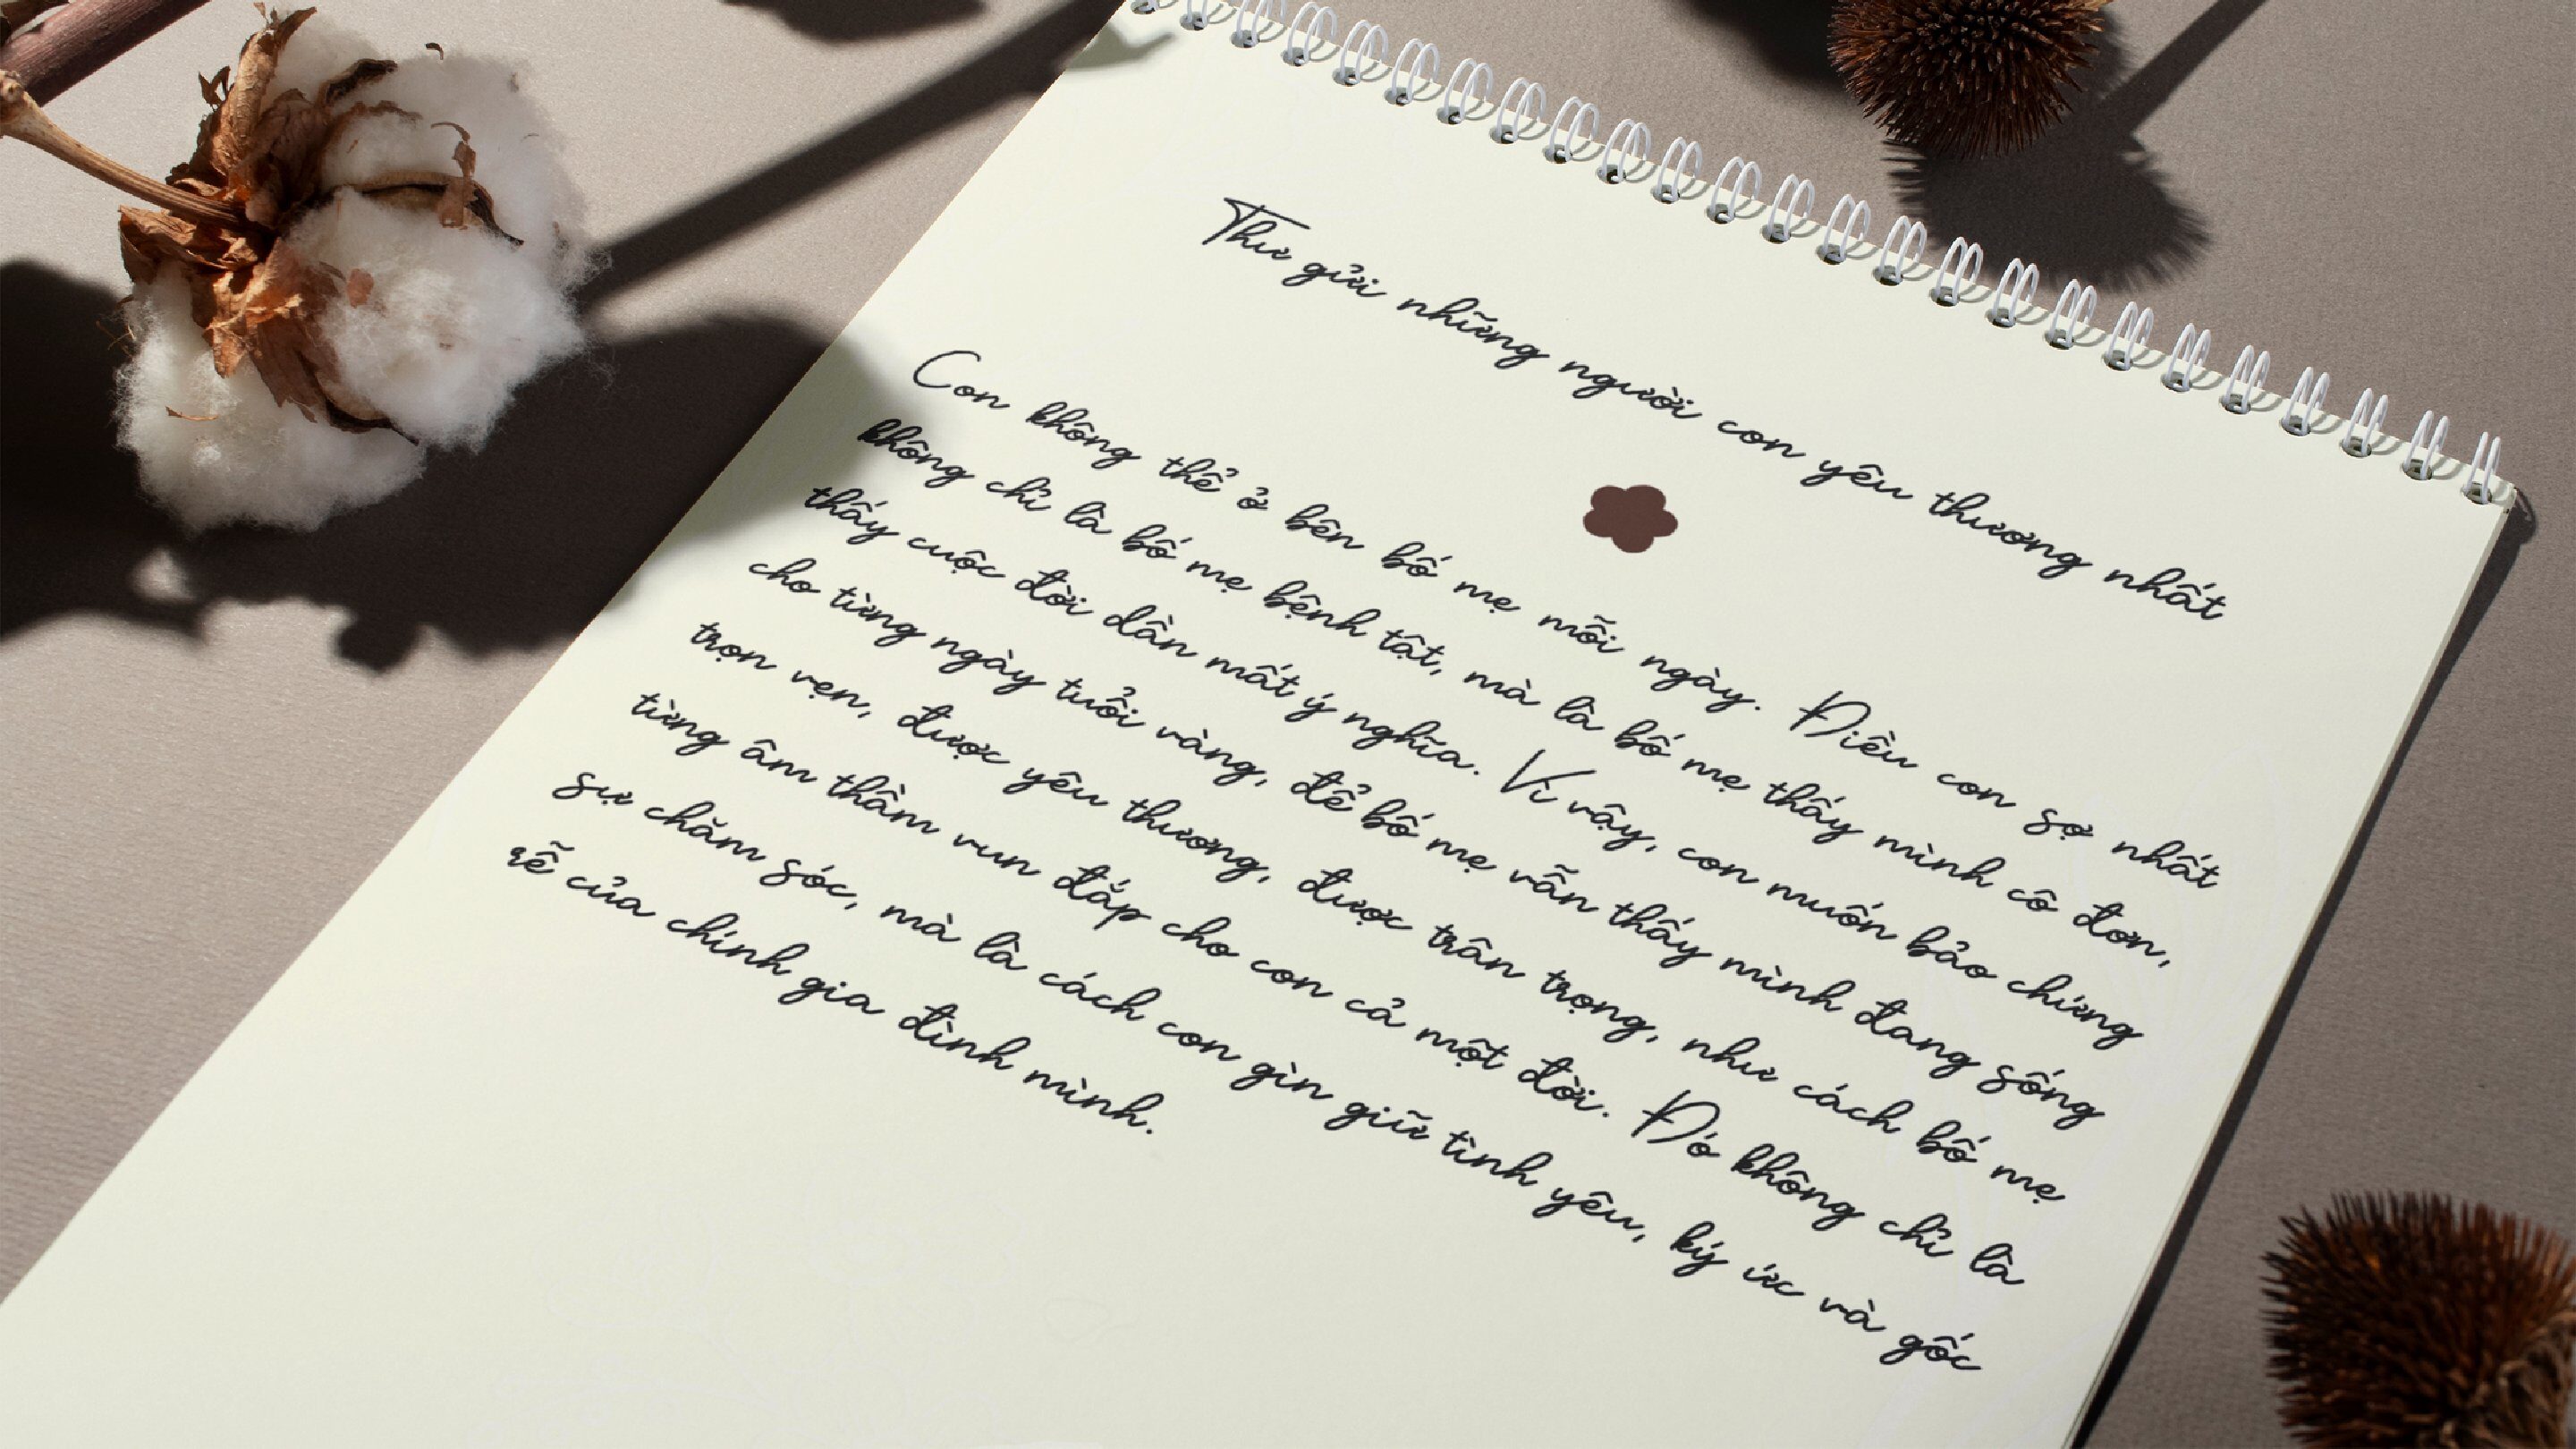 Thư gửi những người con yêu thương nhất
Con không thể ở bên bố mẹ mỗi ngày. Điều con sợ nhất
không chỉ là bố mẹ bệnh tật, mà là bố mẹ thấy mình cô đơn,
thấy cuộc đời dần mất ý nghĩa. Vì vậy, con muốn bảo chứng
cho từng ngày tuổi vàng, để bố mẹ vẫn thấy mình đang sống
trọn vẹn, được yêu thương, được trân trọng, như cách bố mẹ
từng âm thầm vun đắp cho con cả một đời. Đó không chỉ là
sự chăm sóc, mà là cách con gìn giữ tình yêu, ký ức và gốc
rễ của chính gia đình mình.